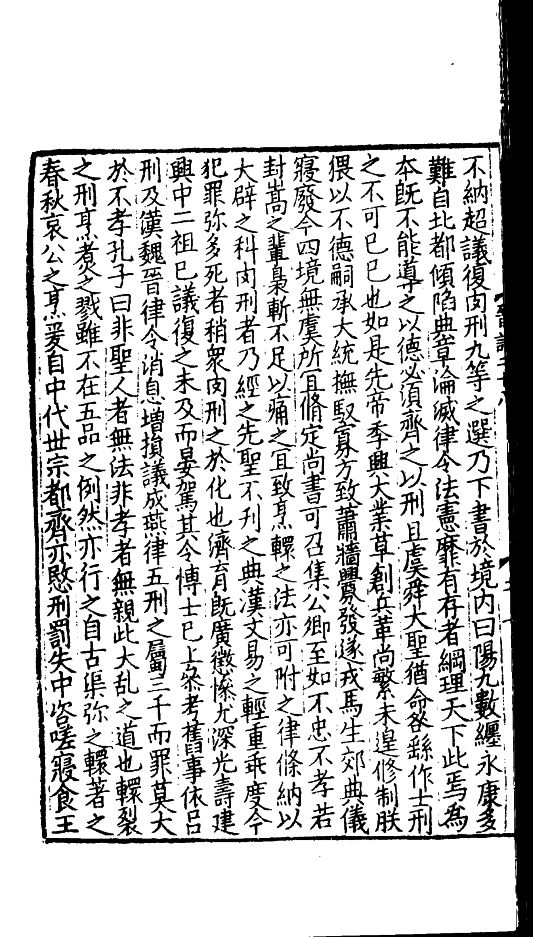 不納超議復肉刑九等之選乃下書於境内曰陽九數纏永康多
難自北都傾陷典章淪滅律令法憲靡有存者綱理天下此焉為
本旣不能導之以德必須齊之以刑且虞舜大聖猶命咎繇作士刑
之不可已已也如是先帝季興大業草創兵革尚繁未遑修制朕
猥以不德嗣承大統撫馭寡方致蕭墻釁發遂戎馬生郊典儀
寢廢今四境無虞所宜脩定尚書可召集公卿至如不忠不孝若
封嵩之輩梟斬不足以痛之宜致烹轘之法亦可附之律條納以
大辟之科肉刑者乃經之先聖不刋之典漢文易之輕重乖度今
犯罪弥多死者稍衆肉刑之於化也濟育旣廣徵慘尤深光壽建
興中二祖已議復之未及而晏駕其令愽士已上叅考舊事依呂
刑及漢魏晉律令消息增損議成燕律五刑之屬三千而罪莫大
於不孝孔子曰非聖人者無法非孝者無親此大亂之道也轘裂
之刑烹煮之戮雖不在五品之例然亦行之自古渠弥之轘著之
春秋哀公之烹爰自中代世宗都齊亦愍刑罰失中咨嗟寢食王